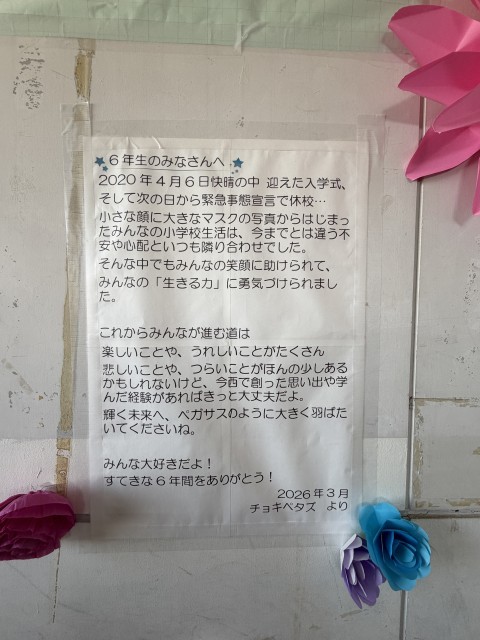 6年生のみなさんへ
2020年4月6日快晴の中 迎えた入学式、
そして次の日から緊急事態宣言で休校…
小さな顔に大きなマスクの写真からはじまっ
たみんなの小学校生活は、今までとは違う不
安や心配といつも隣り合わせでした。
そんな中でもみんなの笑顔に助けられて、
みんなの「生きる力」に勇気づけられまし
た。
これからみんなが進む道は
楽しいことや、うれしいことがたくさん
悲しいことや、つらいことがほんの少しある
かもしれないけど、今西で創った思い出や学
んだ経験があればきっと大丈夫だよ。
輝く未来へ、ペガサスのように大きく羽ばた
いてくださいね。
みんな大好きだよ！
すてきな6年間をありがとう！
2026年3月
チョキペタズ より